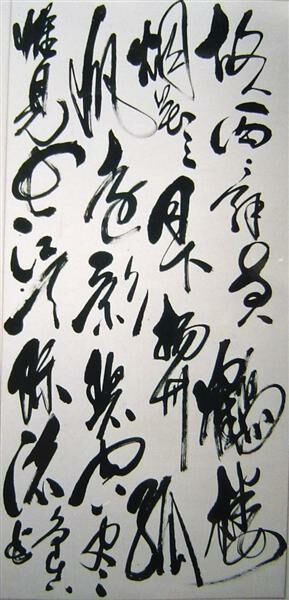 故人西辞黄鹤楼
烟花三月下扬州孤
帆远影碧空尽
惟见长江天际流